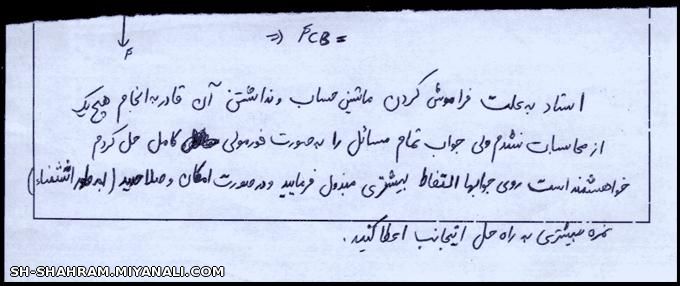 F
=> FCB =
استاد به علت فراموش کردن ماشین حساب و نداشتن آن قادر به انجام هیچ یک
از محاسبات نشدم ولی جواب تمام مسائل را به صورت فورمولی کامل حل کردم
خواهشمند است روی جوابها التفاط بیشتری مبذول فرمایید و در صورت امکان و صلاحدید (به طور اثتثناء)
نمره بیشتری به راه حل اینجانب اعطا کنید.
SH-SHAHRAM.MIYANALI.COM